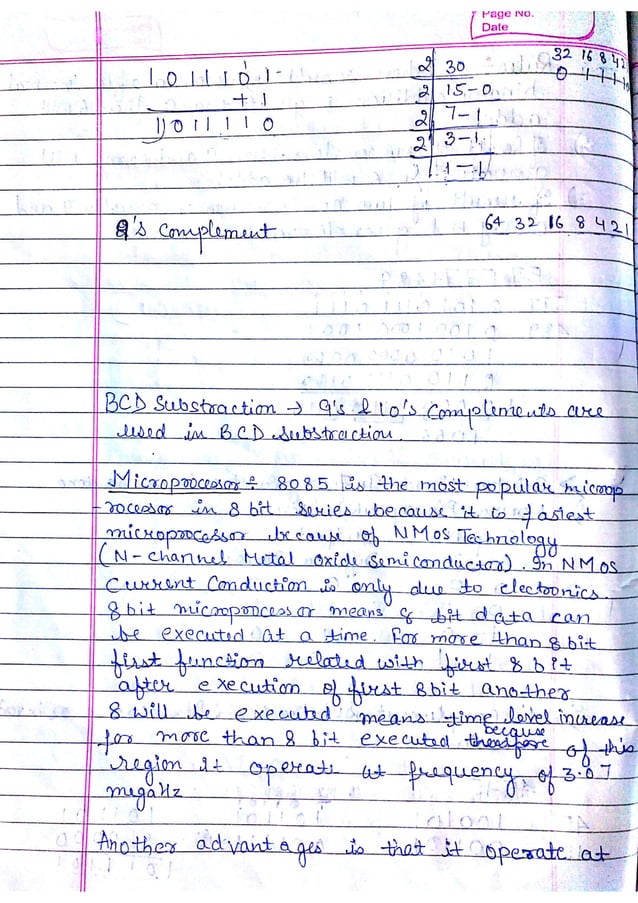 Page No.
Date
1011101
+ 1
1)011110
2 30
2 15-0
2 7-1
2 3-1
1-1
32 16 8 4 2
9's Complement
64 32 16 8 4 2 1
BCD Substraction → 9's & 10's Complements are
used in BCD Substraction.
Microprocesor ÷ 8085 is the most popular microp
-rocessor in 8 bit series because it to fastest
microprocessor because of NMOS Technology
(N-channel Metal Oxide Semiconductor). In NMOS
Current Conduction is only due to electoonics.
8 bit microporocessor means 8 bit data can
be executed at a time. For more than 8 bit
first function related with first 8 bit
after execution of first 8 bit another
8 will be executed means time level increase
for more than 8 bit executed therefore because of this
region it operate at frequency of 3.07
megaHz
Another advantages is that it operate at